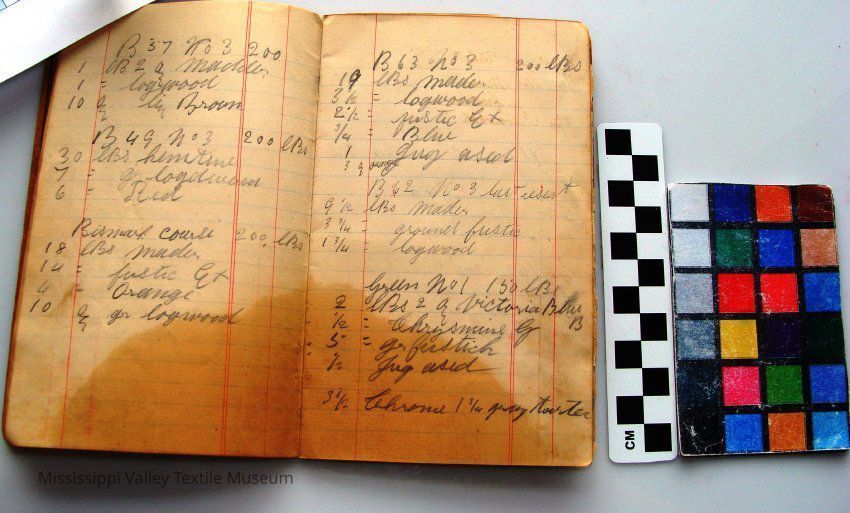 B 37 No 3 200
1 lBs 2 q madder
1 = logwood
10 q Brown
B 49 No 3 200 lBs
30 lBs hemtine
7 = gr logdwood
6 = Red
Bismark course 200 lBs
18 lBs mader
14 = fustic Ex
4 = Orange
10 q gr logwood
B 63 No 3 200 lBs
19 lBs mader
3 1/2 = logwood
2 1/2 = fustic Ex
3/4 = Blue
1 Jug ased
3 q orange
B 62 No 3 last
9 1/2 lBs mader
3 3/4 = ground fustic
1 3/4 = logwood
Green No 1 150 lBs
2 lBs 2 q Victoria Blue B
1/2 = Chrysmine G
5 = gr fustick
1/2 Jug ased
3 1/2 Chrome 1 3/4 tarter
CM
Mississippi Valley Textile Museum